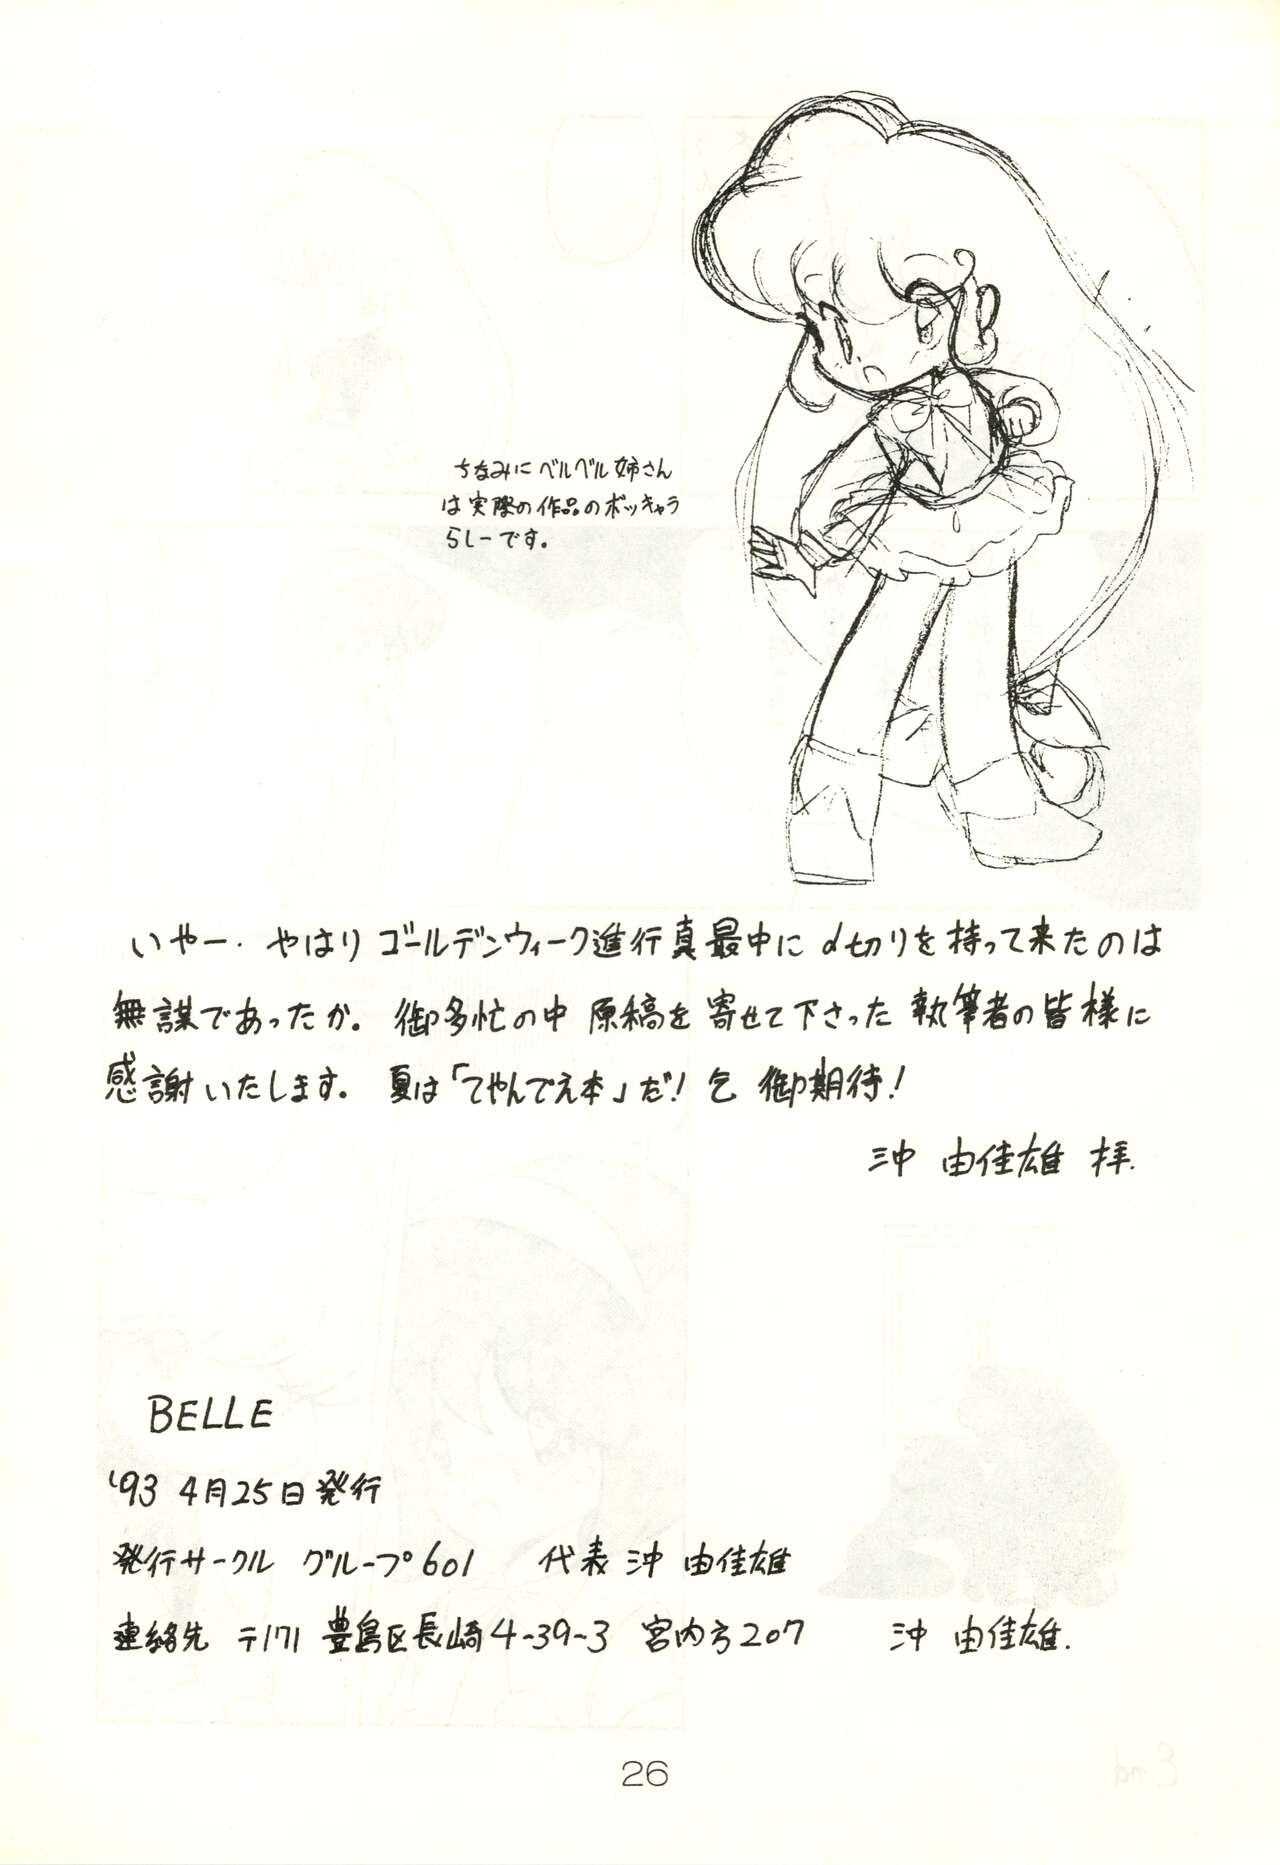 ちなみにベルベル姉さん
は実際の作品のボッキャラ
らしーです。
いやー.やはりゴールデンウィーク進行真最中に〆切りを持って来たのは
無謀であったか。御多忙の中原稿を寄せて下さった執筆者の皆様に
感謝いたします。夏は「てやんでえ本」だ!乞御期待!
沖 由佳雄 拝.
BELLE
'93 4月25日発行
発行サークル グループ601 代表 沖 由佳雄
連絡先 〒171 豊島区長崎4-39-3 宮内方207 沖 由佳雄.
26